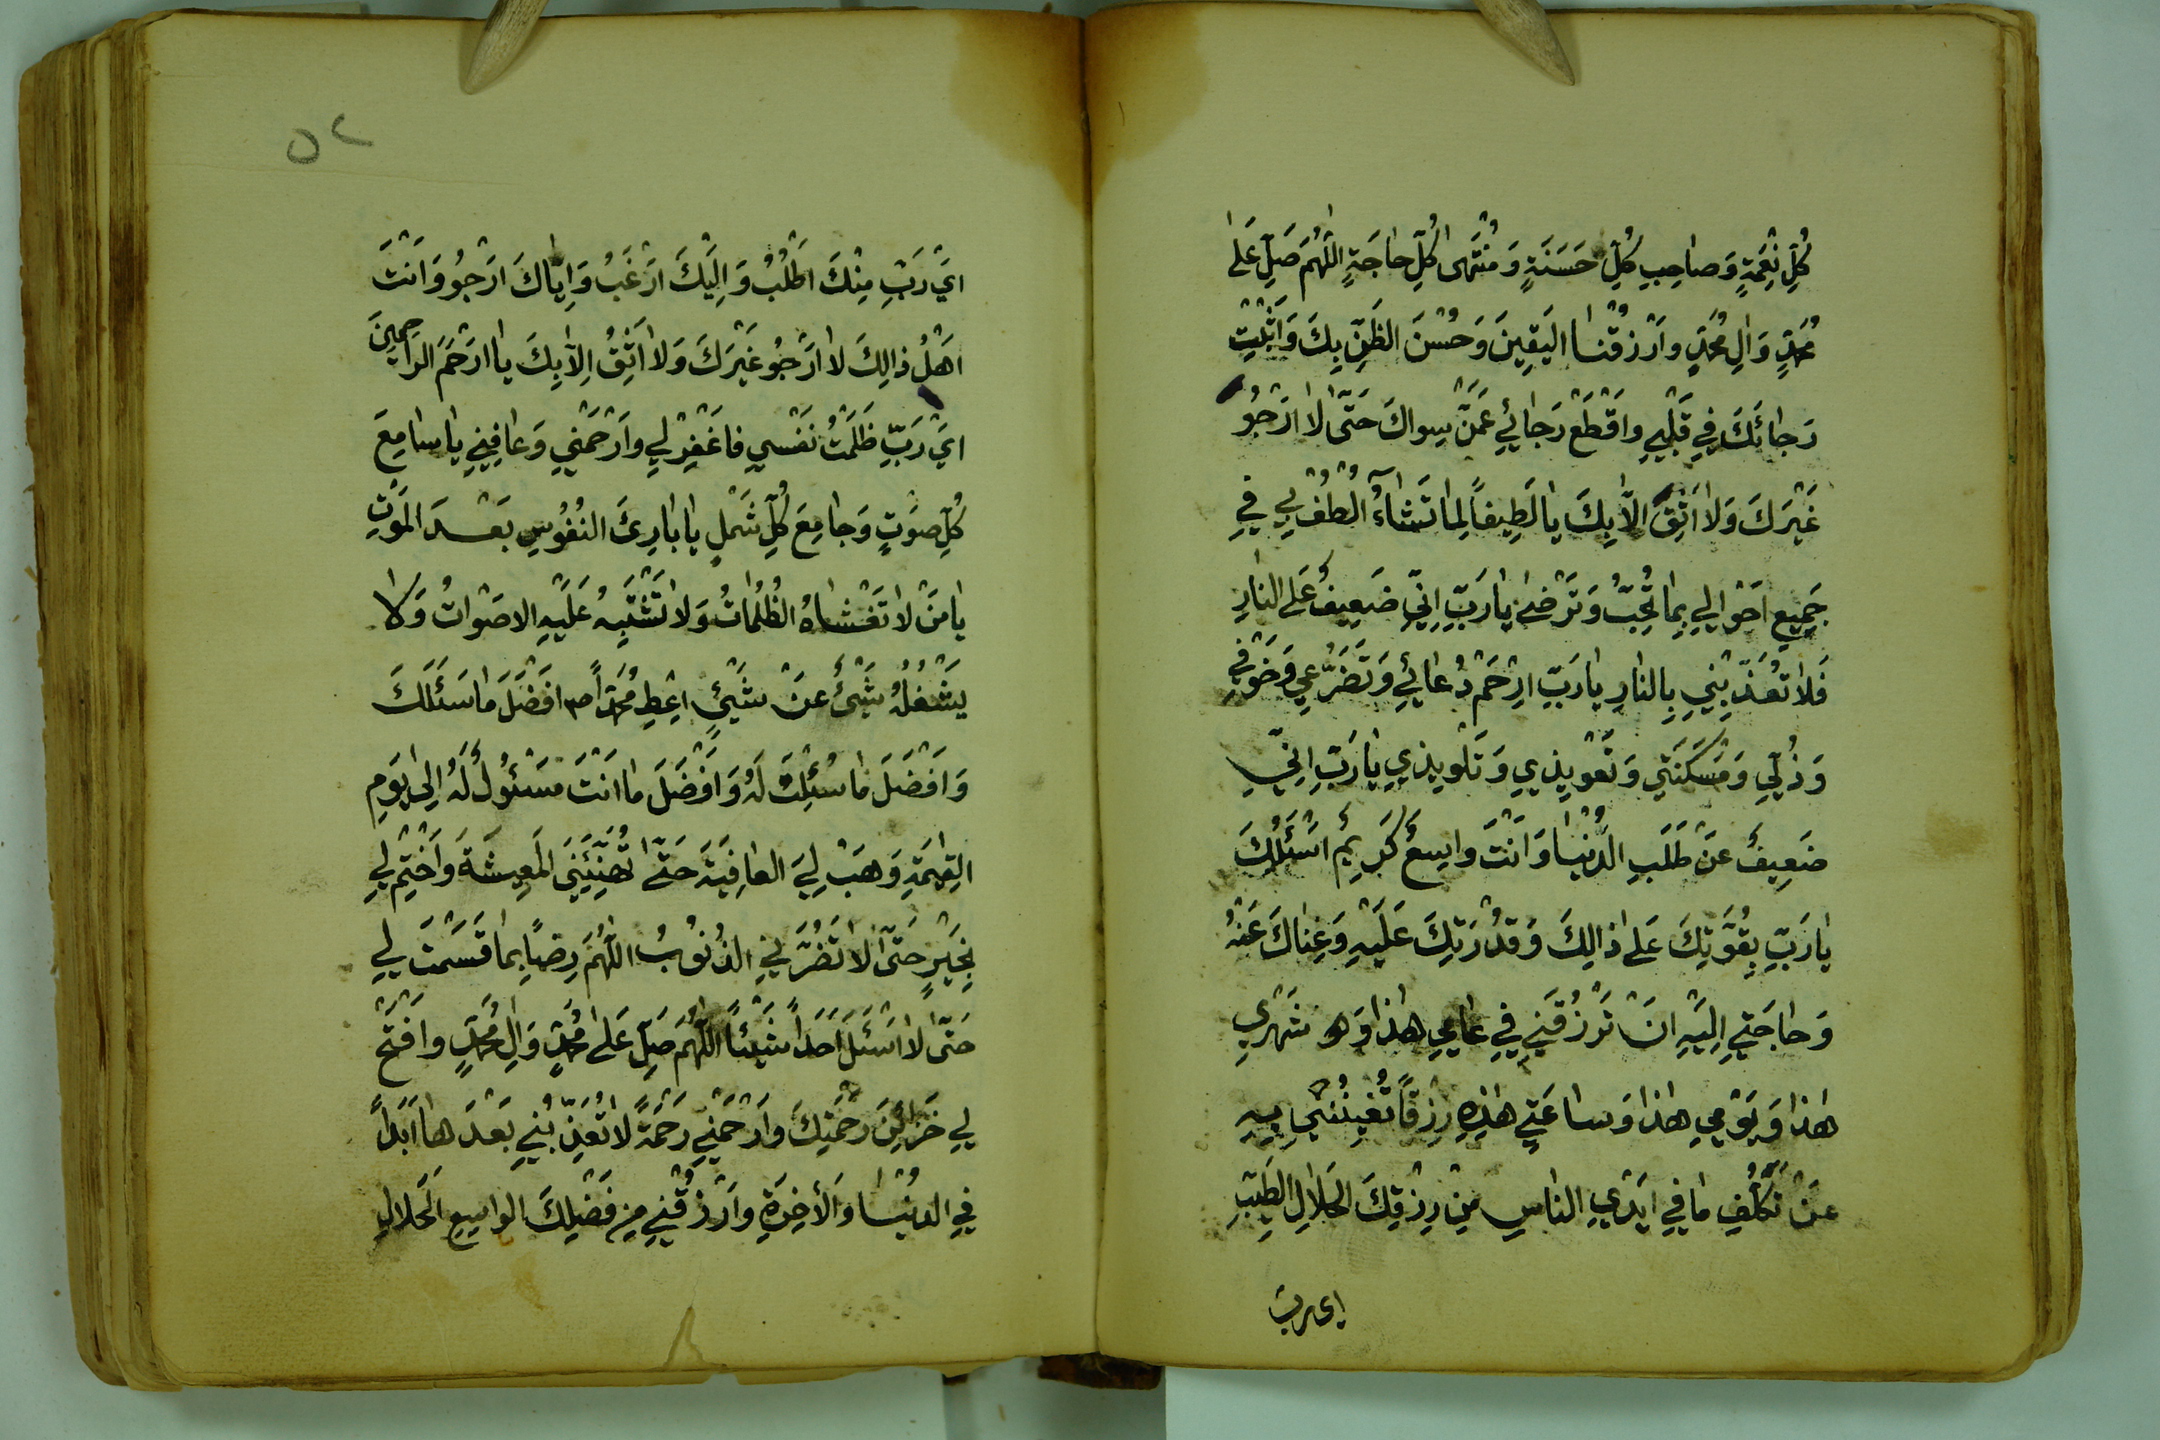 كُلِّ نِعْمَةٍ وَصاحِبِ كُلِّ حَسَنَةٍ وَمُنْتَهىٰ كُلِّ حاجَةٍ اللّٰهُمَّ صَلِّ عَلىٰ
مُحَمَّدٍ وَاٰلِ مُحَمَّدٍ وارْزُقْنا اليَقينَ وَحُسْنَ الظَّنِّ بِكَ وَاَثْبِتْ
رَجائَكَ في قَلْبي واقْطَعْ رَجائي عَمَّنْ سِواكَ حَتّىٰ لا ارْجُو
غَيْرَكَ وَلا اَثِقَ الاّٰ بِكَ يا لَطيفاً لِما تَشاءُ الْطُفْ لي في
جَميعِ احْوالي بِما تُحِبُّ وَتَرْضىٰ يا رَبِّ اِنّي ضَعيفٌ عَلَى النارِ
فَلا تُعَذِّبْني بِالنارِ يا رَبِّ ارْحَمْ دُعائي وَتَضَرُّعي وَخَوْفي
وَذُلّي وَمَسْكَنَتي وَتَعْويذي وَتَلْويذي يا رَبِّ اِنّي
ضَعيفٌ عَنْ طَلَبِ الدُّنْيا وَانْتَ واسِعٌ كَريمٌ اسْئَلُكَ
يا رَبِّ بِقُوَّتِكَ عَلىٰ ذالِكَ وَقُدْرَتِكَ عَلَيْهِ وَغِناكَ عَنْهُ
وَحاجَتي اِلَيْهِ انْ تَرْزُقَني في عامي هٰذا وَهو شَهْري
هٰذا وَيَوْمي هٰذا وَساعَتي هٰذِهِ رِزْقاً تُغْنيني بِهِ
عَنْ تَكَلُّفِ ما في ايْدي الناسِ مِنْ رِزْقِكَ الحَلالِ الطَيِّبِ
اى رب
٥٢
ايْ رَبِّ مِنْكَ اطْلُبُ وَاِلَيْكَ ارْغَبُ وَاِيّاكَ ارْجُو وَانْتَ
اهْلُ ذالِكَ لا ارْجُو غَيْرَكَ وَلا اَثِقُ اِلاّٰ بِكَ يا ارْحَمَ الراحِمينَ
ايْ رَبِّ ظَلَمْتُ نَفْسي فاغْفِرْ لي وارْحَمْني وَعافِني يا سامِعَ
كُلِّ صَوْتٍ وَجامِعَ كُلِّ شَمْلٍ يا بارِئَ النُفُوسِ بَعْدَ المَوْتِ
يا مَنْ لا تَغْشاهُ الظُلُماتُ وَلا تَشْتَبِهُ عَلَيْهِ الاصْواتُ وَلا
يَشْغَلُهُ شَيْئٌ عَنْ شَيْئٍ اعْطِ مُحَمَّداً ص افْضَلَ ما سَئَلَكَ
وَافْضَلَ ما سُئِلْتَ لَهُ وَافْضَلَ ما انْتَ مَسْئُولٌ لَهُ اِلىٰ يَوْمِ
القِيٰمَةِ وَهَبْ لِيَ العافِيَةَ حَتّىٰ تُهَنِّئَنِيَ المَعيشَةَ واخْتِمْ لي
بِخَيْرٍ حَتّىٰ لا تَضُرَّني الذُنُوبُ اللّٰهُمَّ رَضِّني بِما قَسَمْتَ لي
حَتّىٰ لا اسْئَلَ اَحَداً شَيْئاً اللّٰهُمَّ صَلِّ عَلىٰ مُحَمَّدٍ وَاٰلِ مُحَمَّدٍ وافْتَحْ
لي خَزائِنَ رَحْمَتِكَ وارْحَمْني رَحْمَةً لا تُعَذِّبُني بَعْدَها اَبَداً
في الدنْيا وَالاٰخِرَةِ وارْزُقْني مِن فَضْلِكَ الواسِعِ الحَلالِ